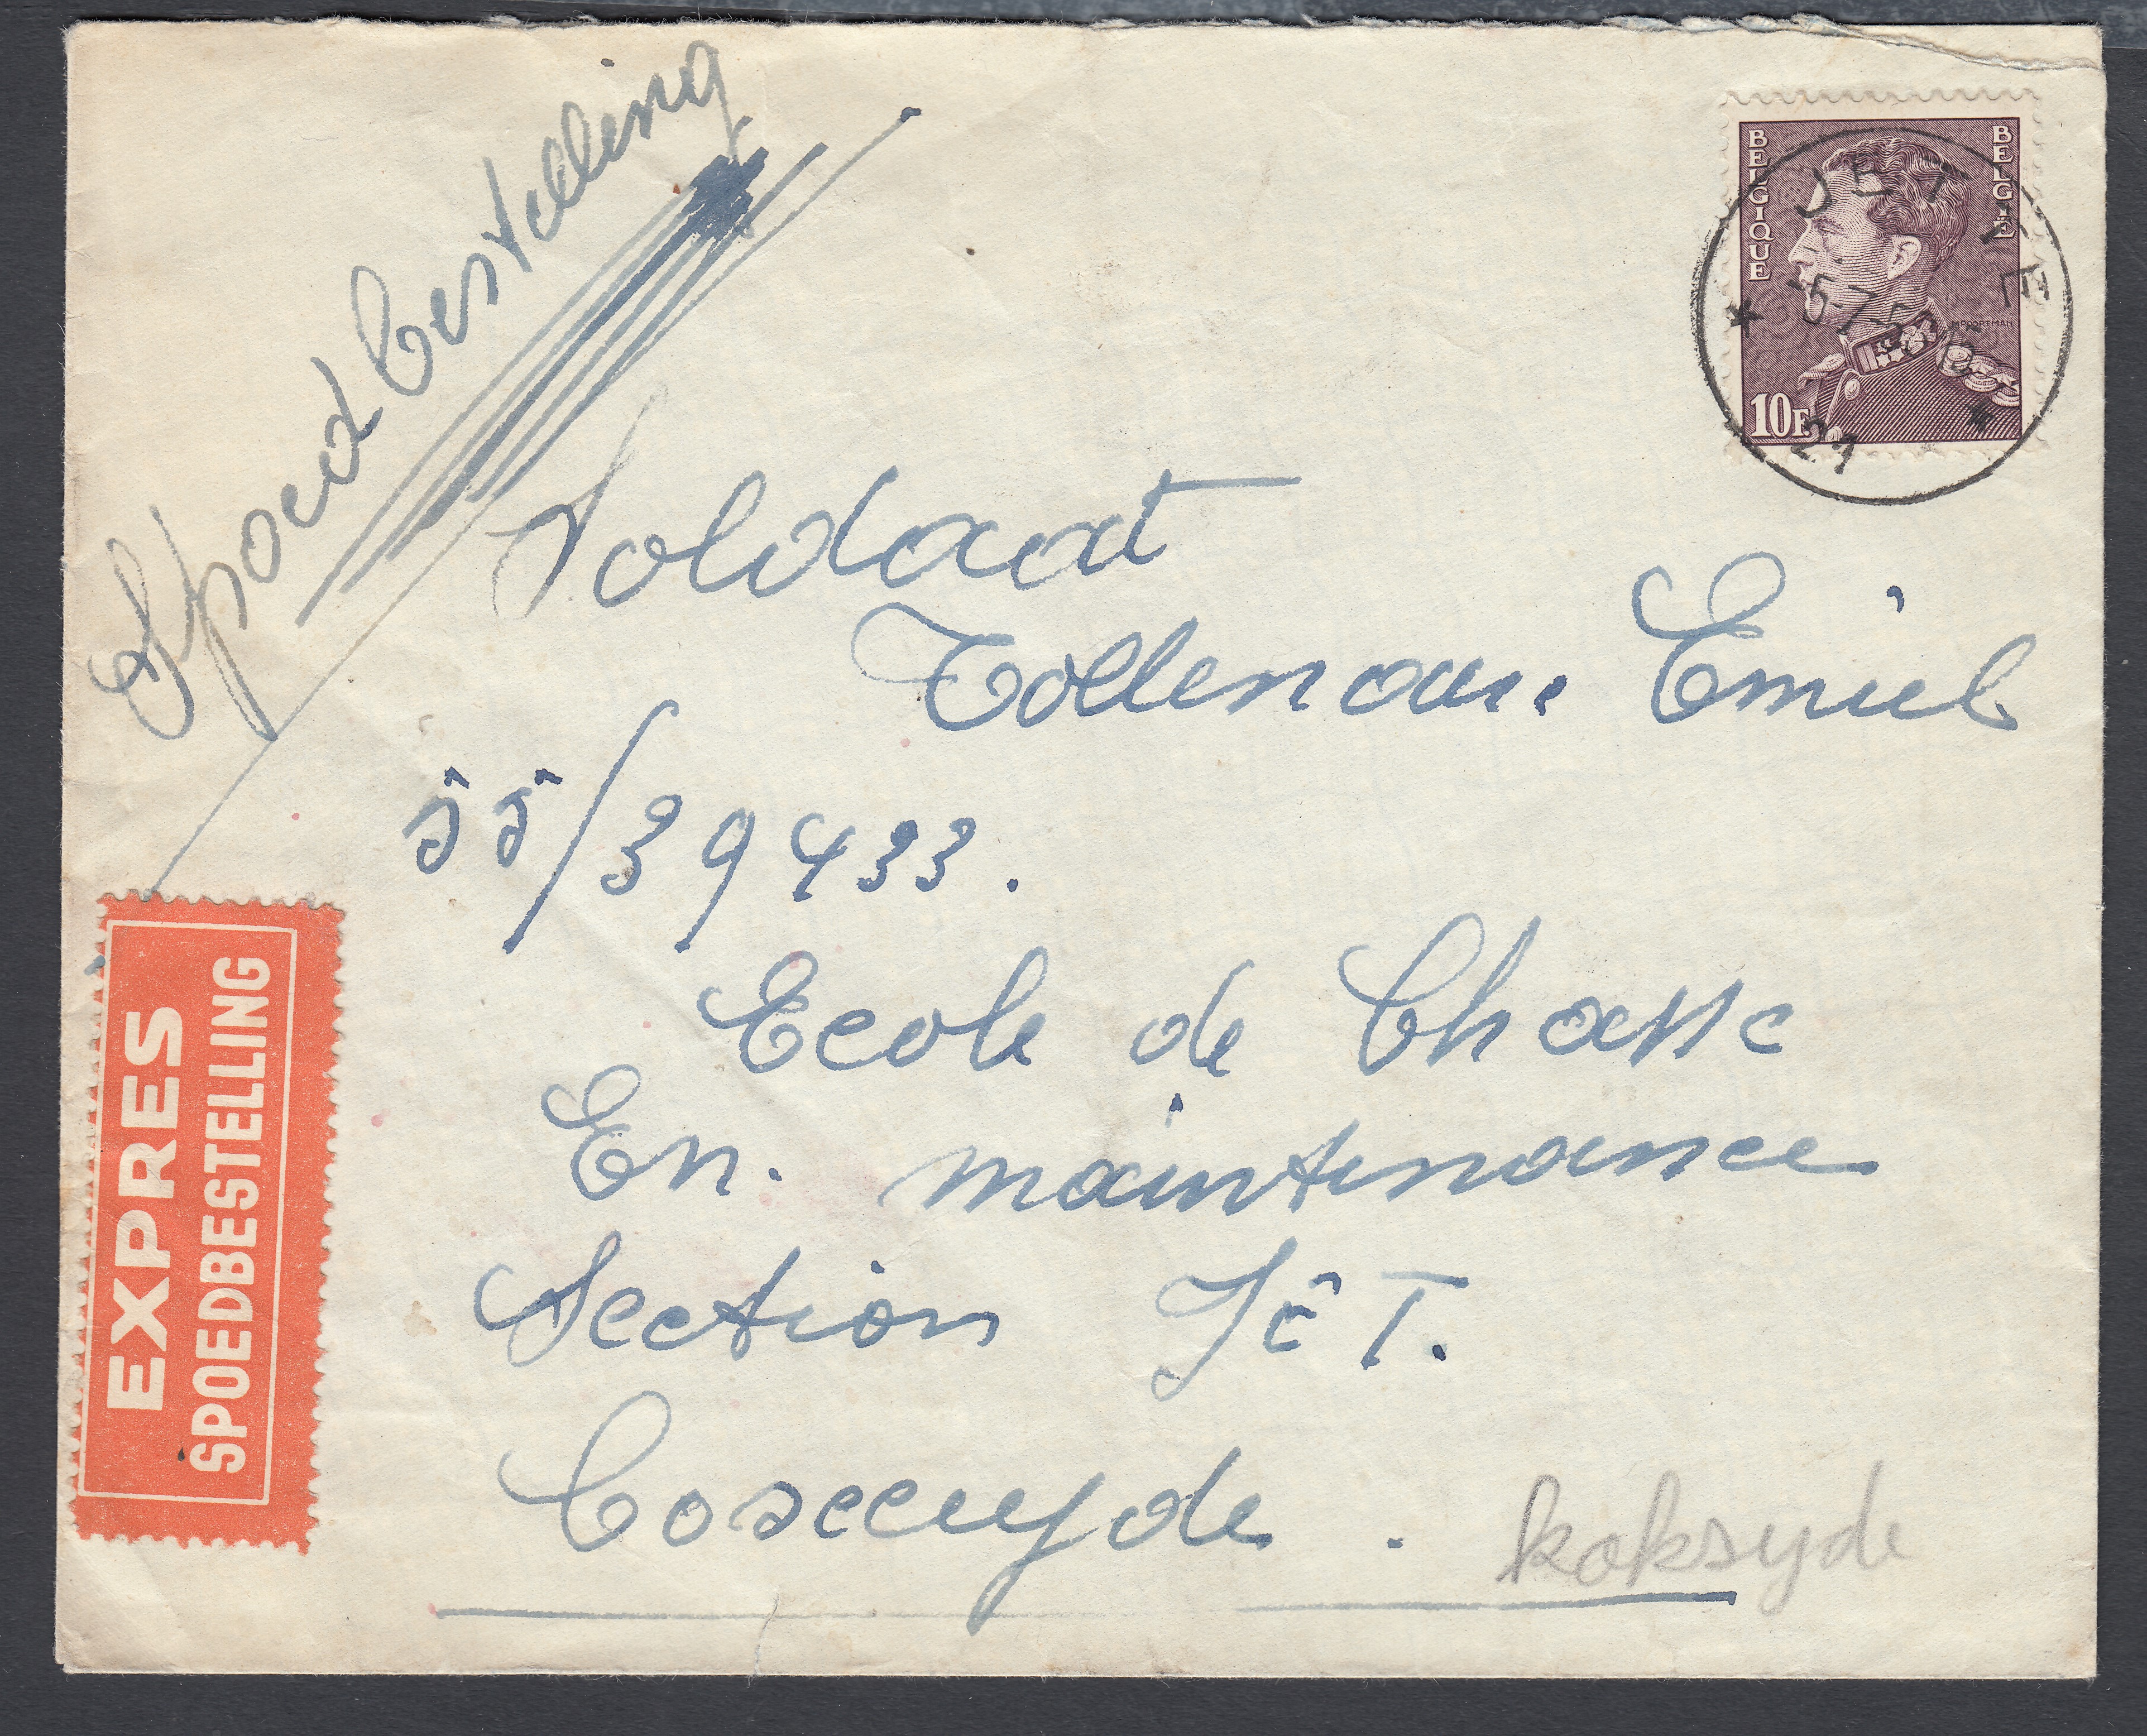 Spoedbestelling
BELGIQUE
BELGIË
JETTE
10F
21
Soldaat
Tollenaere Emiel
55/39433.
Ecole de Chasse
En. maintenance
Section JêT.
Coxccuyde.
koksyde
EXPRES
SPOEDBESTELLING